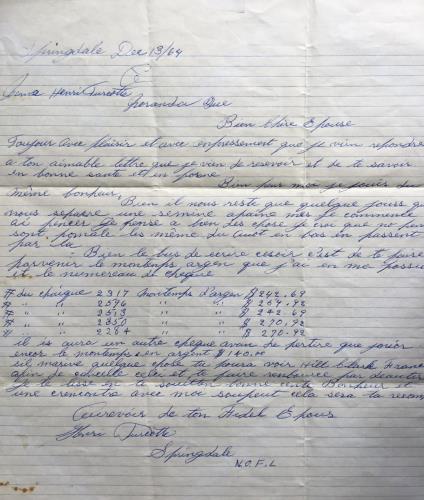 Springdale Dec 13/64
Henri Turcotte
Noranda Que
Bien Chère Epouse
Toujour avec plaisir et avec empressement que je vien repondre
a ton aimable lettre que je vien de resevoir et de te savoir
en bonne santé et en forme
Bien pour moi je jouis du
même bonheur,
Bien il nous reste que quelque jours qui
nous separre une semine apaine mes je commente
ai pencer. Je panse a bien des chose je croi que ne
sont les même du en bas en passent
par la
Bien le but de ecrire cesoir c'est de te faire
parvenir le montemps argen que j'ai en ma
et le numereau de cheque
# du chaique 2317 montemps d'argen $ 242.69
# " " 2576 " " $ 254.92
# " " 2513 " " $ 242.69
# " " 2350 " " $ 270.92
# " " 2284 " " $ 270.92
il is aura un autre cheque avan de partire que
encor le montemps en argent $ 140.00
sil marive quelque chose tu poura voir Hill Clark Franc
afin de et te faire
Je te lisse en te bonne santé Bonheur et
une rencontre avec moi cela sera ta
Aurevoir de ton Fidel Epous
Henri Turcotte
Springdale
N.O.F.L